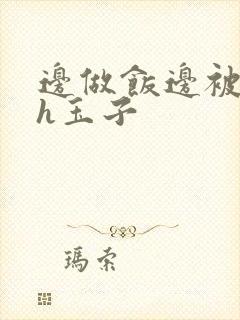 邊做飯邊被
h玉子
瑪索